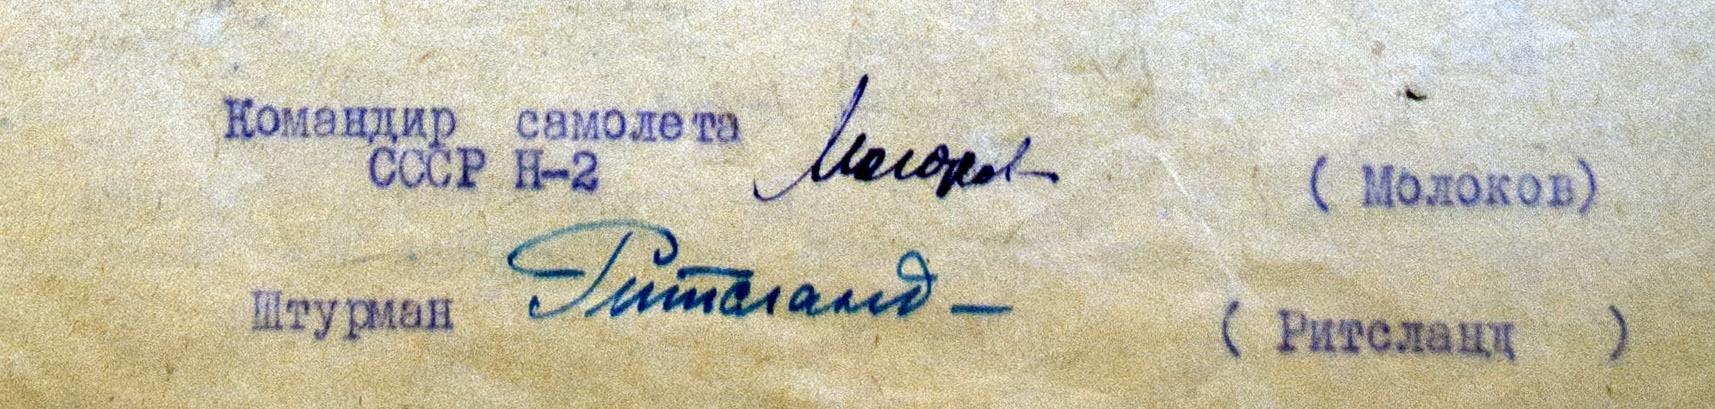 Командир самолета Молоков
СССР Н-2 ( Молоков)
Штурман Ритсланд — ( Ритсланд )